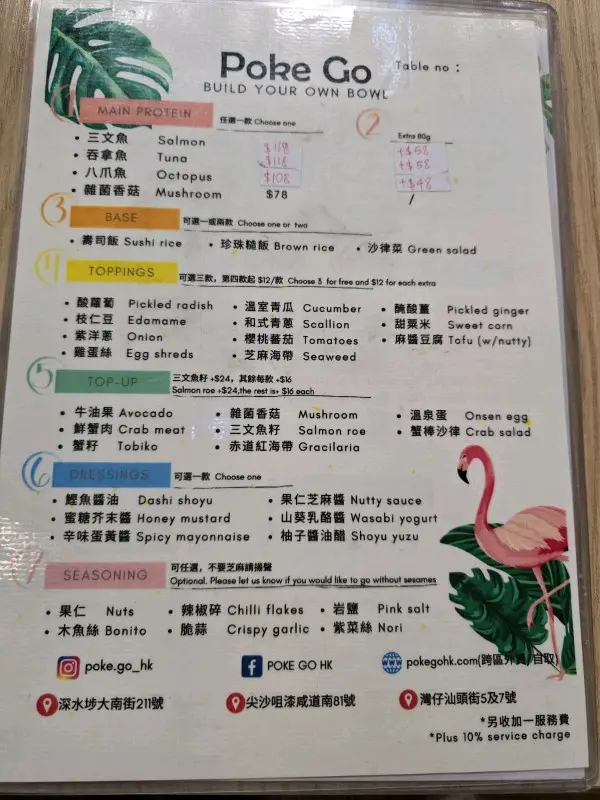 Poke Go
Table no :
BUILD YOUR OWN BOWL
1 MAIN PROTEIN 任選一款 Choose one
2 Extra 80g
三文魚 Salmon $118 +$58
吞拿魚 Tuna $118 +$58
八爪魚 Octopus $108 +$48
雜菌香菇 Mushroom $78 /
3 BASE 可選一或兩款 Choose one or two
壽司飯 Sushi rice • 珍珠糙飯 Brown rice • 沙律菜 Green salad
4 TOPPINGS 可選三款，第四款起 $12/款 Choose 3 for free and $12 for each extra
酸蘿蔔 Pickled radish • 溫室青瓜 Cucumber • 醃酸薑 Pickled ginger
枝仁豆 Edamame • 和式青蔥 Scallion • 甜粟米 Sweet corn
紫洋蔥 Onion • 櫻桃蕃茄 Tomatoes • 麻醬豆腐 Tofu (w/nutty)
雞蛋絲 Egg shreds • 芝麻海帶 Seaweed
5 TOP-UP 三文魚籽 +$24，其餘每款 +$16
Salmon roe +$24,the rest is+ $16 each
牛油果 Avocado • 雜菌香菇 Mushroom • 溫泉蛋 Onsen egg
鮮蟹肉 Crab meat • 三文魚籽 Salmon roe • 蟹棒沙律 Crab salad
蟹籽 Tobiko • 赤道紅海帶 Gracilaria
6 DRESSINGS 可選一款 Choose one
鰹魚醬油 Dashi shoyu • 果仁芝麻醬 Nutty sauce
蜜糖芥末醬 Honey mustard • 山葵乳酪醬 Wasabi yogurt
辛味蛋黃醬 Spicy mayonnaise • 柚子醬油醋 Shoyu yuzu
7 SEASONING 可任選，不要芝麻請揚聲
Optional. Please let us know if you would like to go without sesames
果仁 Nuts • 辣椒碎 Chilli flakes • 岩鹽 Pink salt
木魚絲 Bonito • 脆蒜 Crispy garlic • 紫菜絲 Nori
poke.go_hk POKE GO HK pokegohk.com(跨區外賣/自取)
深水埗大南街211號 尖沙咀漆咸道南81號 灣仔汕頭街5及7號
*另收加一服務費
*Plus 10% service charge